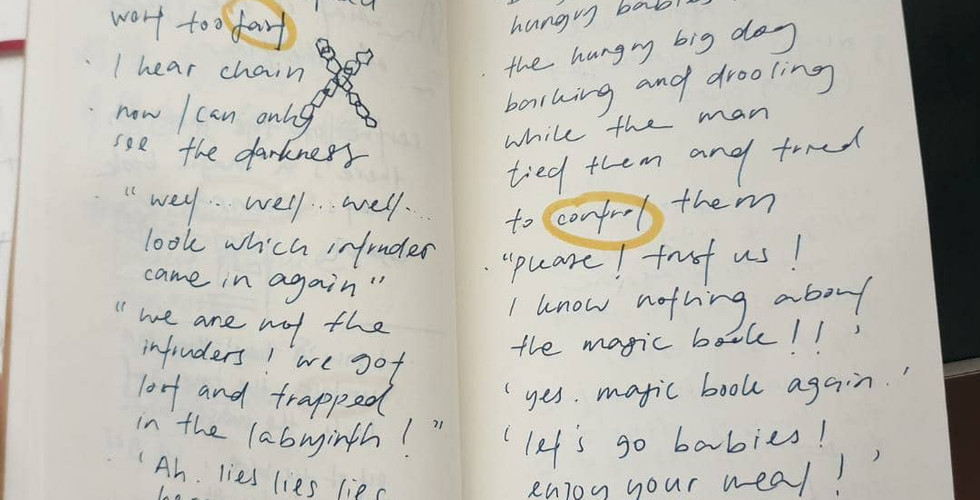 went too fast
I hear chain
now I can only
see the darkness
"well... well... well...
look which intruder
came in again"
"we are not the
intruders! we got
lost and trapped
in the labyrinth!"
'Ah. lies lies lies
hungry babies
the hungry big dog
barking and drooling
while the man
tied them and tried
to control them
"please! trust us!
I know nothing about
the magic book!!'
'yes. magic book again.'
'let's go babies!
enjoy your meal!'